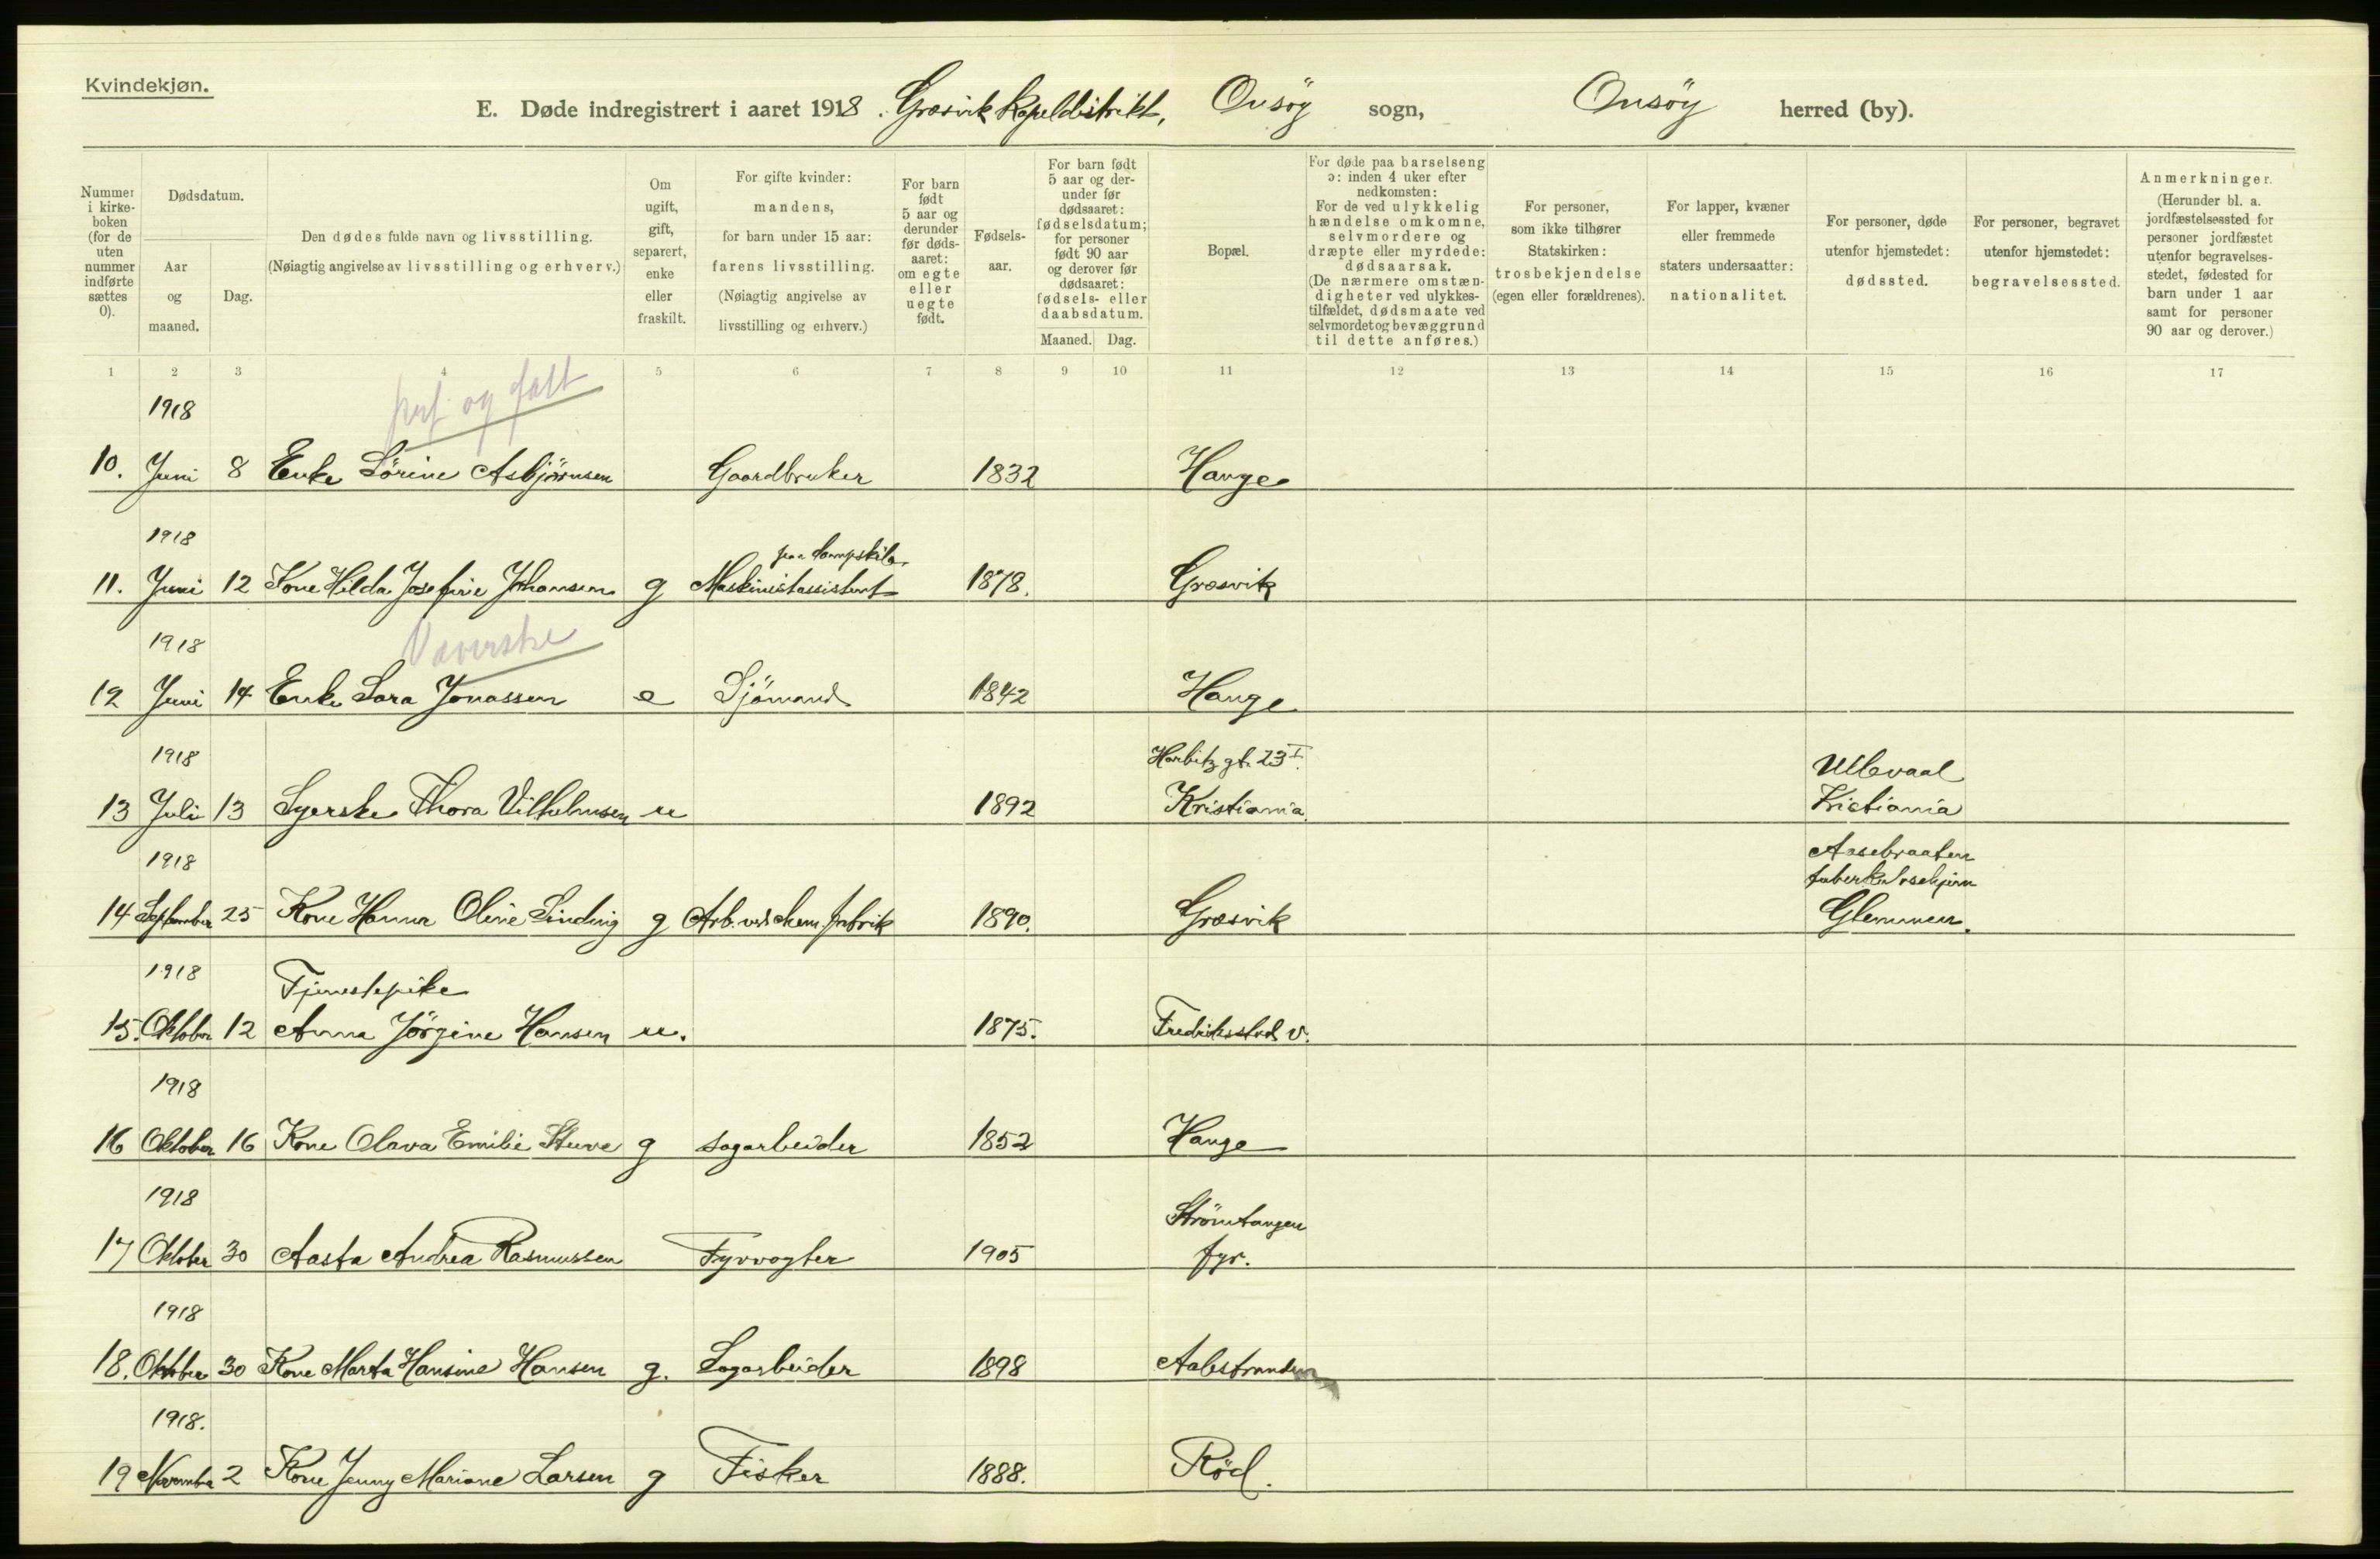 Kvindekjøn.
E. Døde indregistrert i aaret 1918. Græsvik Kapeldistrikt, Onsöy sogn, Onsöy herred (by).
Nummer i kirkeboken (for de uten nummer indførte sættes 0).
Dødsdatum.
Aar og maaned.
Dag.
Den dødes fulde navn og livsstilling.
(Nøiagtig angivelse av livsstilling og erhverv.)
Om ugift, gift, separert, enke eller fraskilt.
For gifte kvinder: mandens, for barn under 15 aar: farens livsstilling.
(Nøiagtig angivelse av livsstilling og erhverv.)
For barn født 5 aar og derunder før dødsaaret: om egte eller uegte født.
Fødselsaar.
For barn født 5 aar og derunder før dødsaaret: fødselsdatum; for personer født 90 aar og derover før dødsaaret: fødsels- eller daabsdatum.
Maaned. Dag.
Bopæl.
For døde paa barselseng ɔ: inden 4 uker efter nedkomsten:
For de ved ulykkelig hændelse omkomne, selvmordere og dræpte eller myrdede: dødsaarsak.
(De nærmere omstændigheter ved ulykkestilfældet, dødsmaate ved selvmordet og bevæggrund til dette anføres.)
For personer, som ikke tilhører Statskirken: trosbekjendelse (egen eller forældrenes).
For lapper, kvæner eller fremmede staters undersaatter: nationalitet.
For personer, døde utenfor hjemstedet: dødssted.
For personer, begravet utenfor hjemstedet: begravelsessted.
Anmerkninger.
(Herunder bl. a. jordfæstelsessted for personer jordfæstet utenfor begravelsesstedet, fødested for barn under 1 aar samt for personer 90 aar og derover.)
1 2 3 4 5 6 7 8 9 10 11 12 13 14 15 16 17
1918
10. Juni 8 Enke Sörine Asbjörnsen Gaardbruker 1832 Hauge
1918 paa dampskib
11. Juni 12 Kone Hilda Josefine Johansen g Maskinistassistent 1878. Græsvik
1918 Væverske
12 Juni 14 Enke Sara Jonassen e Sjömand 1842 Hauge
1918 Harbitz gt. 23 I. Ullevaal
13 Juli 13 Syerske Thora Vilhelmsen u 1892 Kristiania. Kristiania
1918 Aasebraaten
tuberkulosehjem
14 September 25 Kone Hanna Oline Sinding g Arb. ved chem. fabrik 1890. Græsvik Glemmen.
1918 Tjenestepike
15. Oktober 12 Anna Jörgine Hansen u. 1875. Fredriksstad v.
1918
16 Oktober 16 Kone Olava Emilie Stuve g sagarbeider 1852 Hauge
1918 Strömtangen
17 Oktober 30 Aasta Andrea Rasmussen Fyrvogter 1905 fyr.
1918
18. Oktober 30 Kone Marta Hansine Hansen g. Sagarbeider 1898 Aalestranden
1918.
19 November 2 Kone Jenny Mariane Larsen g Fisker 1888. Röd.